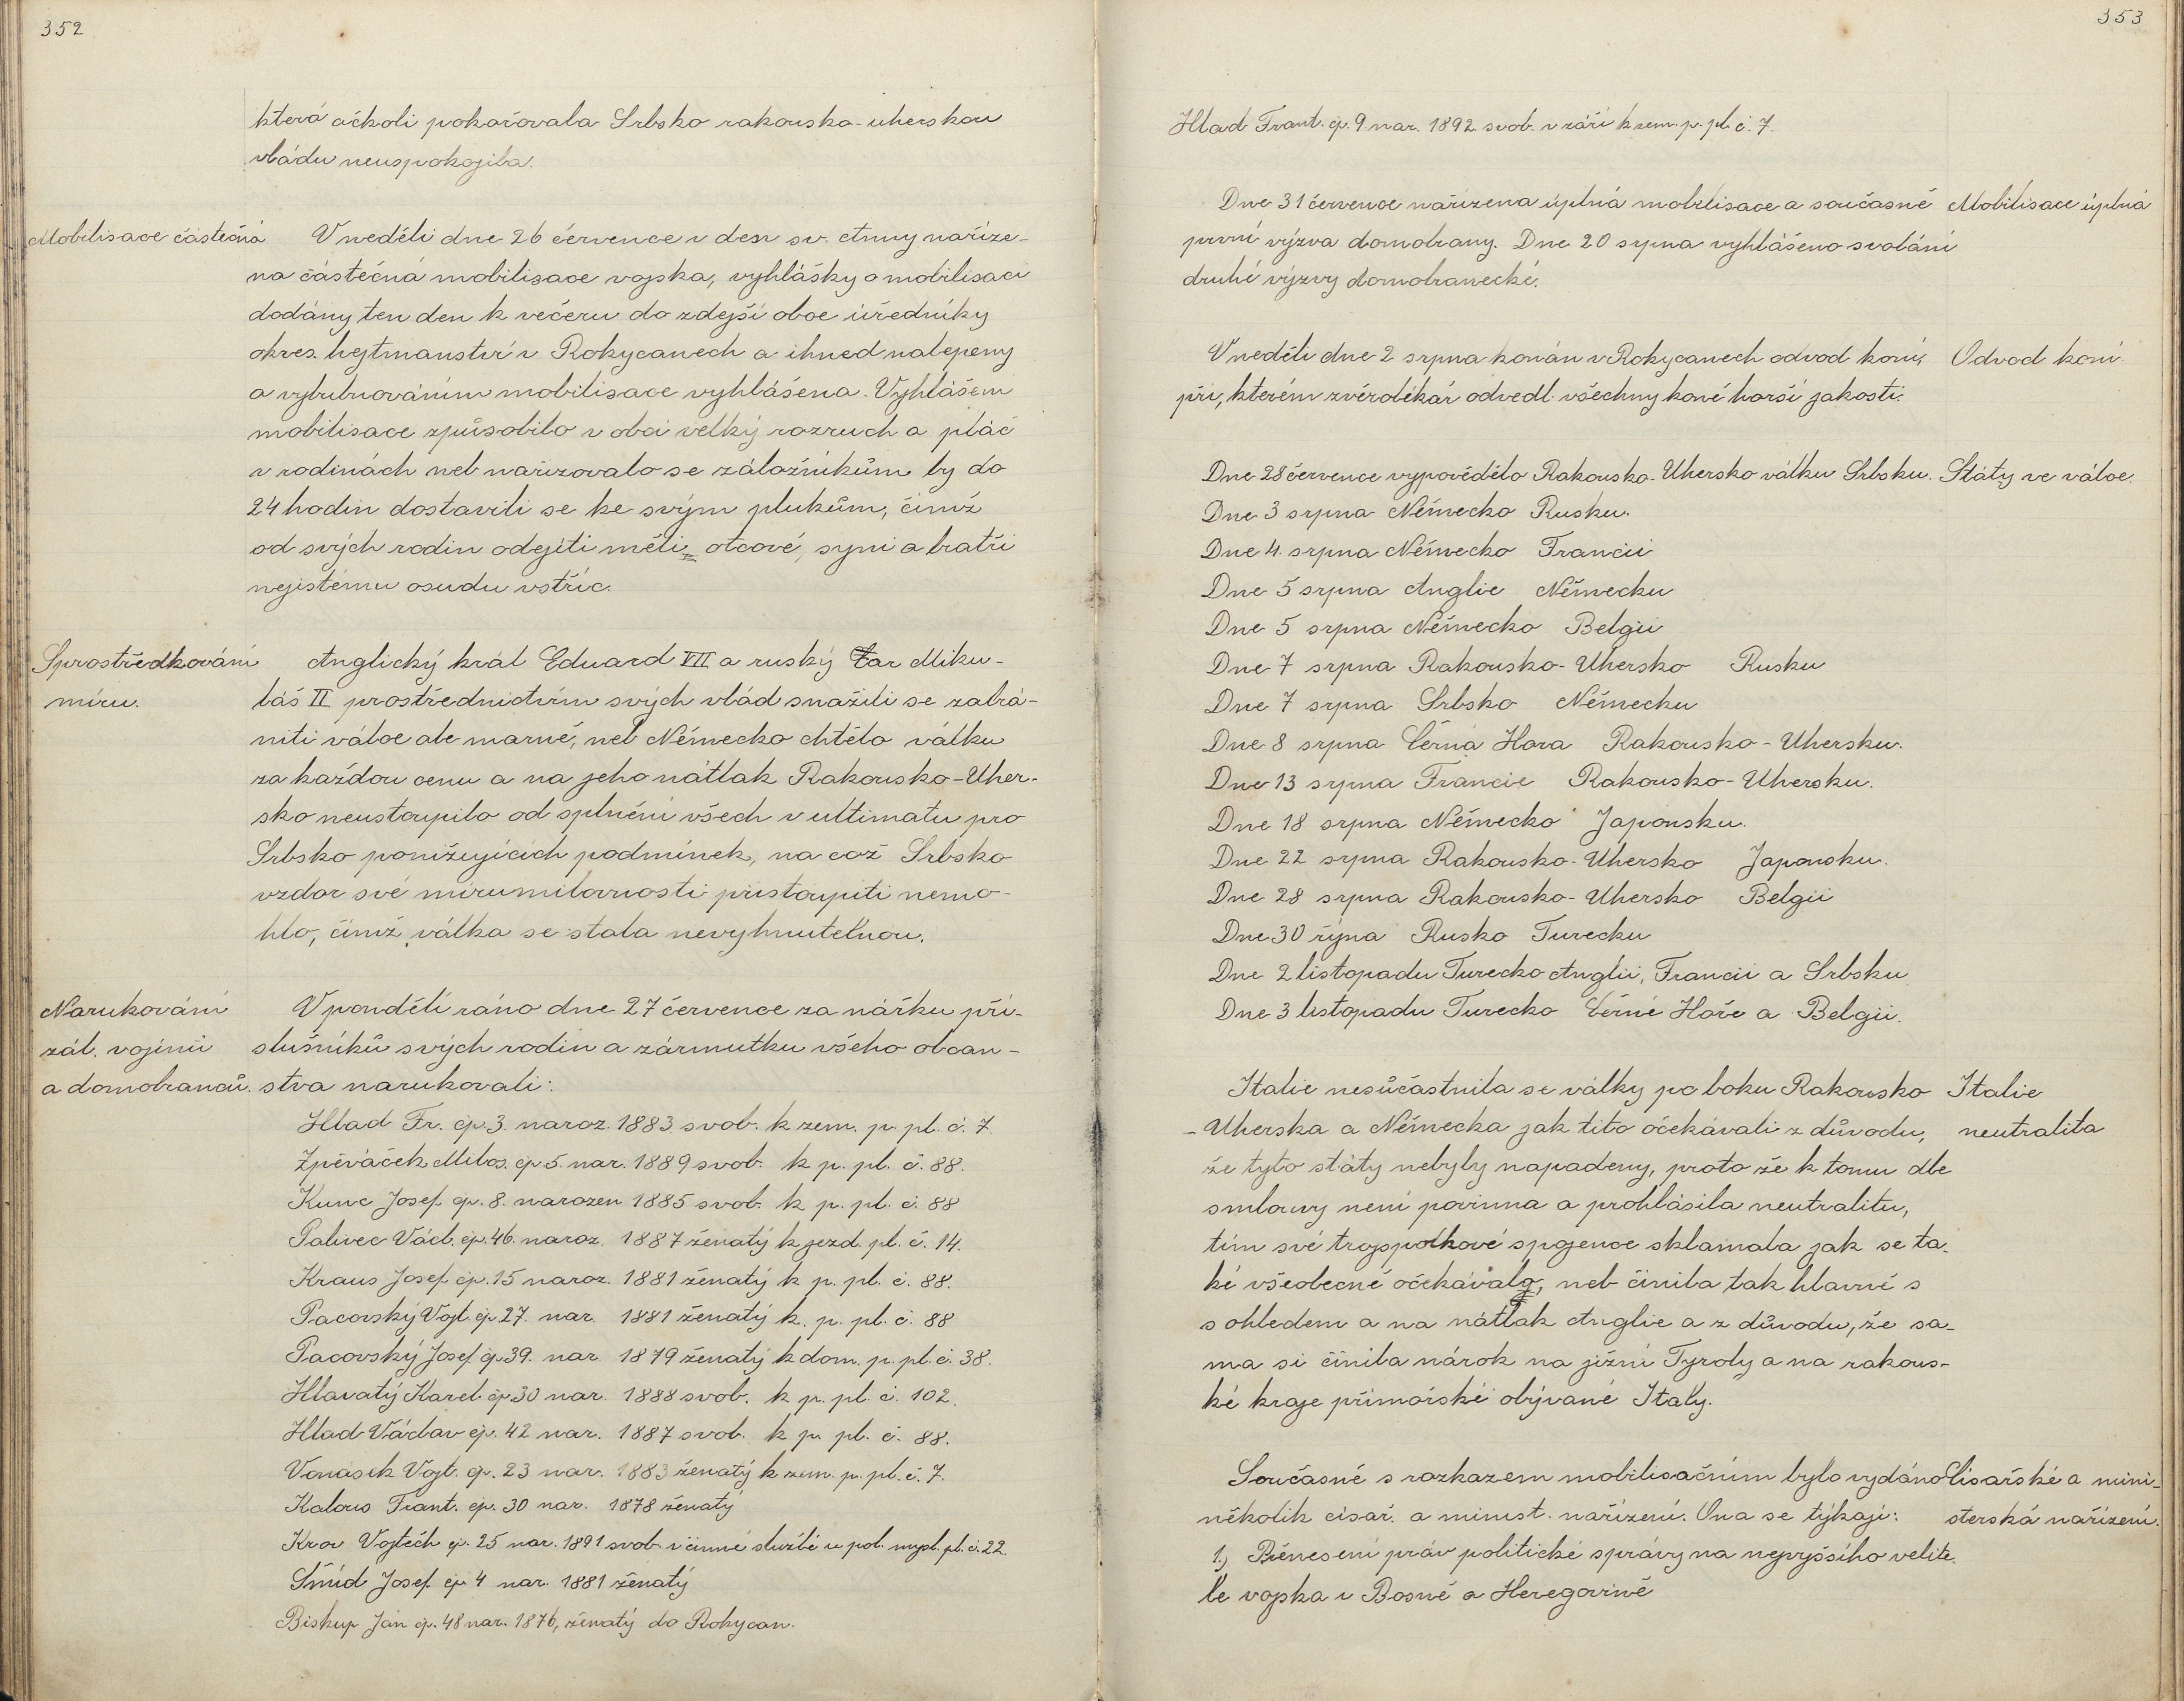 352
která ačkoli pokořovala Srbsko rakousko-uherskou
vládu neuspokojila.
Mobilisace částečná
V neděli dne 26 července v den sv. Anny naříze-
na částečná mobilisace vojska, vyhlášky o mobilisaci
dodány ten den k večeru do zdejší obce úředníky
okres. hejtmanství v Rokycanech a ihned nalepeny
a vybubnováním mobilisace vyhlášena. Vyhlášení
mobilisace způsobilo v obci velký rozruch a pláč
v rodinách neb nařizovalo se záložníkům by do
24 hodin dostavili se ke svým plukům, čímž
od svých rodin odejíti měli otcové, syni a bratři
nejistému osudu vstříc.
Sprostředkování
míru.
Anglický král Eduard VII a ruský Car Miku-
láš II prostřednictvím svých vlád snažili se zabrá-
niti válce ale marně, neb Německo chtělo válku
za každou cenu a na jeho nátlak Rakousko-Uher-
sko neustoupilo od splnění všech v ultimatu pro
Srbsko ponižujících podmínek, na což Srbsko
vzdor své mírumilovnosti přistoupiti nemo-
hlo, čímž válka se stala nevyhnutelnou.
Narukování
zál. vojínů
a domobranců.
V pondělí ráno dne 27 července za nářku pří-
slušníků svých rodin a zármutku všeho občan-
stva narukovali:
Hlad Fr. čp. 3. naroz. 1883 svob. k zem. p. pl. č. 7.
Zpěváček Milos. čp. 5. nar. 1889 svob. k p. pl. č. 88.
Kunc Josef čp. 8. narozen 1885 svob. k p. pl. č. 88
Palivec Václ. čp. 46. naroz. 1887 ženatý k jezd. pl. č. 14.
Kraus Josef čp. 15 naroz. 1881 ženatý k p. pl. č. 88.
Pacovský Vojt. čp 27. nar. 1881 ženatý k. p. pl. č. 88
Pacovský Josef čp 39. nar. 1879 ženatý k dom. p. pl. č. 38.
Hlavatý Karel čp 30 nar. 1888 svob. k p. pl. č. 102.
Hlad Václav čp. 42 nar. 1887 svob. k p. pl. č. 88.
Vonásek Vojt. čp. 23 nar. 1883 ženatý k zem. p. pl. č. 7.
Kalous Frant. čp. 30 nar. 1878 ženatý
Krov Vojtěch čp. 25 nar. 1891 svob. v činné službě u pol. mysl. pl. č. 22.
Šmíd Josef čp 4 nar. 1881 ženatý
Biskup Jan čp. 48 nar. 1876, ženatý do Rokycan.
353
Hlad Frant. čp. 9 nar. 1892 svob. v září k zem. p. pl. č. 7.
Dne 31 července nařízena úplná mobilisace a současně
první výzva domobrany. Dne 20 srpna vyhlášeno svolání
druhé výzvy domobranecké.
Mobilisace úplná
V neděli dne 2 srpna konán v Rokycanech odvod koní,
při, kterém zvěrolékař odvedl všechny koně horší jakosti.
Odvod koní
Dne 28 července vypovědělo Rakousko-Uhersko válku Srbsku.
Státy ve válce.
Dne 3 srpna Německo Rusku.
Dne 4 srpna Německo Francii
Dne 5 srpna Anglie Německu
Dne 5 srpna Německo Belgii
Dne 7 srpna Rakousko-Uhersko Rusku
Dne 7 srpna Srbsko Německu
Dne 8 srpna Černá Hora Rakousko-Uhersku.
Dne 13 srpna Francie Rakousko-Uhersku.
Dne 18 srpna Německo Japonsku.
Dne 22 srpna Rakousko-Uhersko Japonsku.
Dne 28 srpna Rakousko-Uhersko Belgii
Dne 30 října Rusko Turecku
Dne 2 listopadu Turecko Anglii, Francii a Srbsku
Dne 3 listopadu Turecko Černé Hoře a Belgii.
Italie nesůčastnila se války po boku Rakousko
-Uherska a Německa jak tito očekávali z důvodu,
že tyto státy nebyly napadeny, proto že k tomu dle
smlouvy není povinna a prohlásila neutralitu,
tím své trojspolkové spojence sklamala jak se ta-
ké všeobecně očekávalo, neb činila tak hlavně s
s ohledem a na nátlak Anglie a z důvodu, že sa-
ma si činila nárok na jižní Tyroly a na rakous-
ké kraje přímořské obývané Italy.
Italie
neutralita
Současně s rozkazem mobilisačním bylo vydáno
několik císař. a minist. nařízení. Ona se týkají:
1.) Přenesení práv politické správy na nejvyššího velite-
le vojska v Bosně a Hercegovině
Císařské a mini-
sterská nařízení.